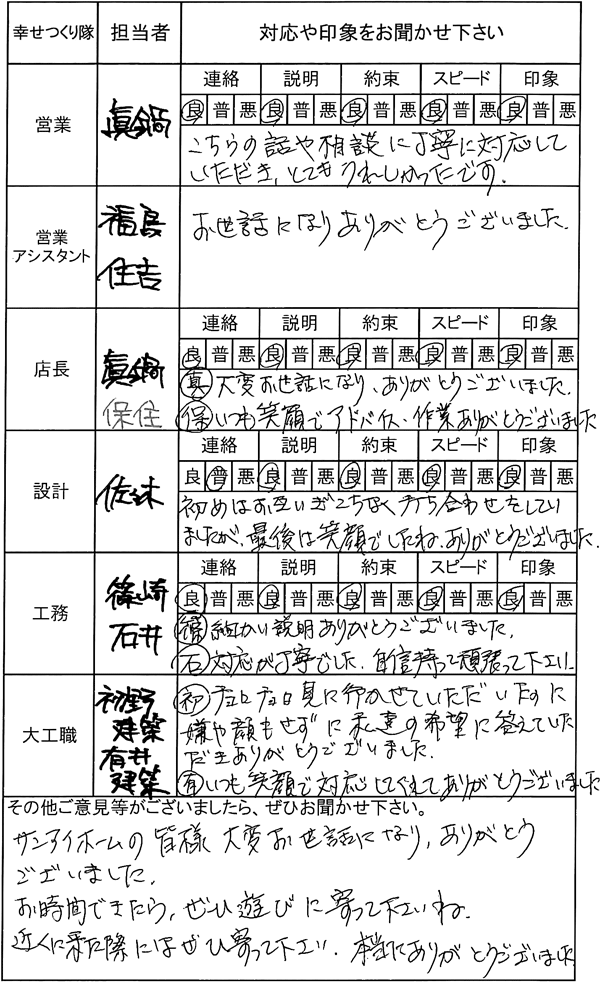 幸せつくり隊 担当者 対応や印象をお聞かせ下さい
営業 眞鍋
連絡 説明 約束 スピード 印象
良 普 悪 良 普 悪 良 普 悪 良 普 悪 良 普 悪
こちらの話や相談に丁寧に対応して
いただき、とてもうれしかったです。
営業
アシスタント
福島
住吉
お世話になりありがとうございました。
店長 眞鍋
保住
連絡 説明 約束 スピード 印象
良 普 悪 良 普 悪 良 普 悪 良 普 悪 良 普 悪
眞 大変お世話になり、ありがとうございました。
保 いつも笑顔でアドバイス、作業ありがとうございました
設計 佐々木
連絡 説明 約束 スピード 印象
良 普 悪 良 普 悪 良 普 悪 良 普 悪 良 普 悪
初めはお互いぎこちなく打ち合わせをしてい
ましたが、最後は笑顔でしたね。ありがとうございました。
工務 篠崎
石井
連絡 説明 約束 スピード 印象
良 普 悪 良 普 悪 良 普 悪 良 普 悪 良 普 悪
篠 細かい説明ありがとうございました。
石 対応が丁寧でした。自信持って頑張って下さい
大工職 初野
建築
有井
建築
初 チョロチョロ見に行かせていただいたのに
嫌や顔もせずに私達の希望に答えていた
だきありがとうございました。
有 いつも笑顔で対応してくれてありがとうございました
その他ご意見等がございましたら、ぜひお聞かせ下さい。
サンアイホームの皆様 大変お世話になり、ありがとう
ございました。
お時間できたら、ぜひ遊びに寄って下さいね。
近くに来た際にはぜひ寄って下さい。本当にありがとうございました